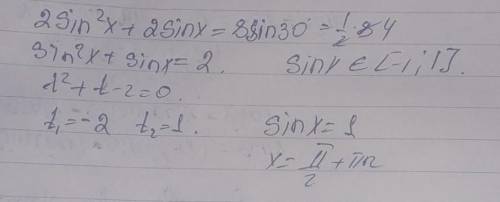 2Sin²x + 2Sinx = 8sin30 = 1/2 · 8 4
Sin²x + Sinx = 2. Sinx ∈ [-1; 1].
t² + t - 2 = 0.
t₁ = -2 t₂ = 1. Sinx = 1
x = π/2 + πn